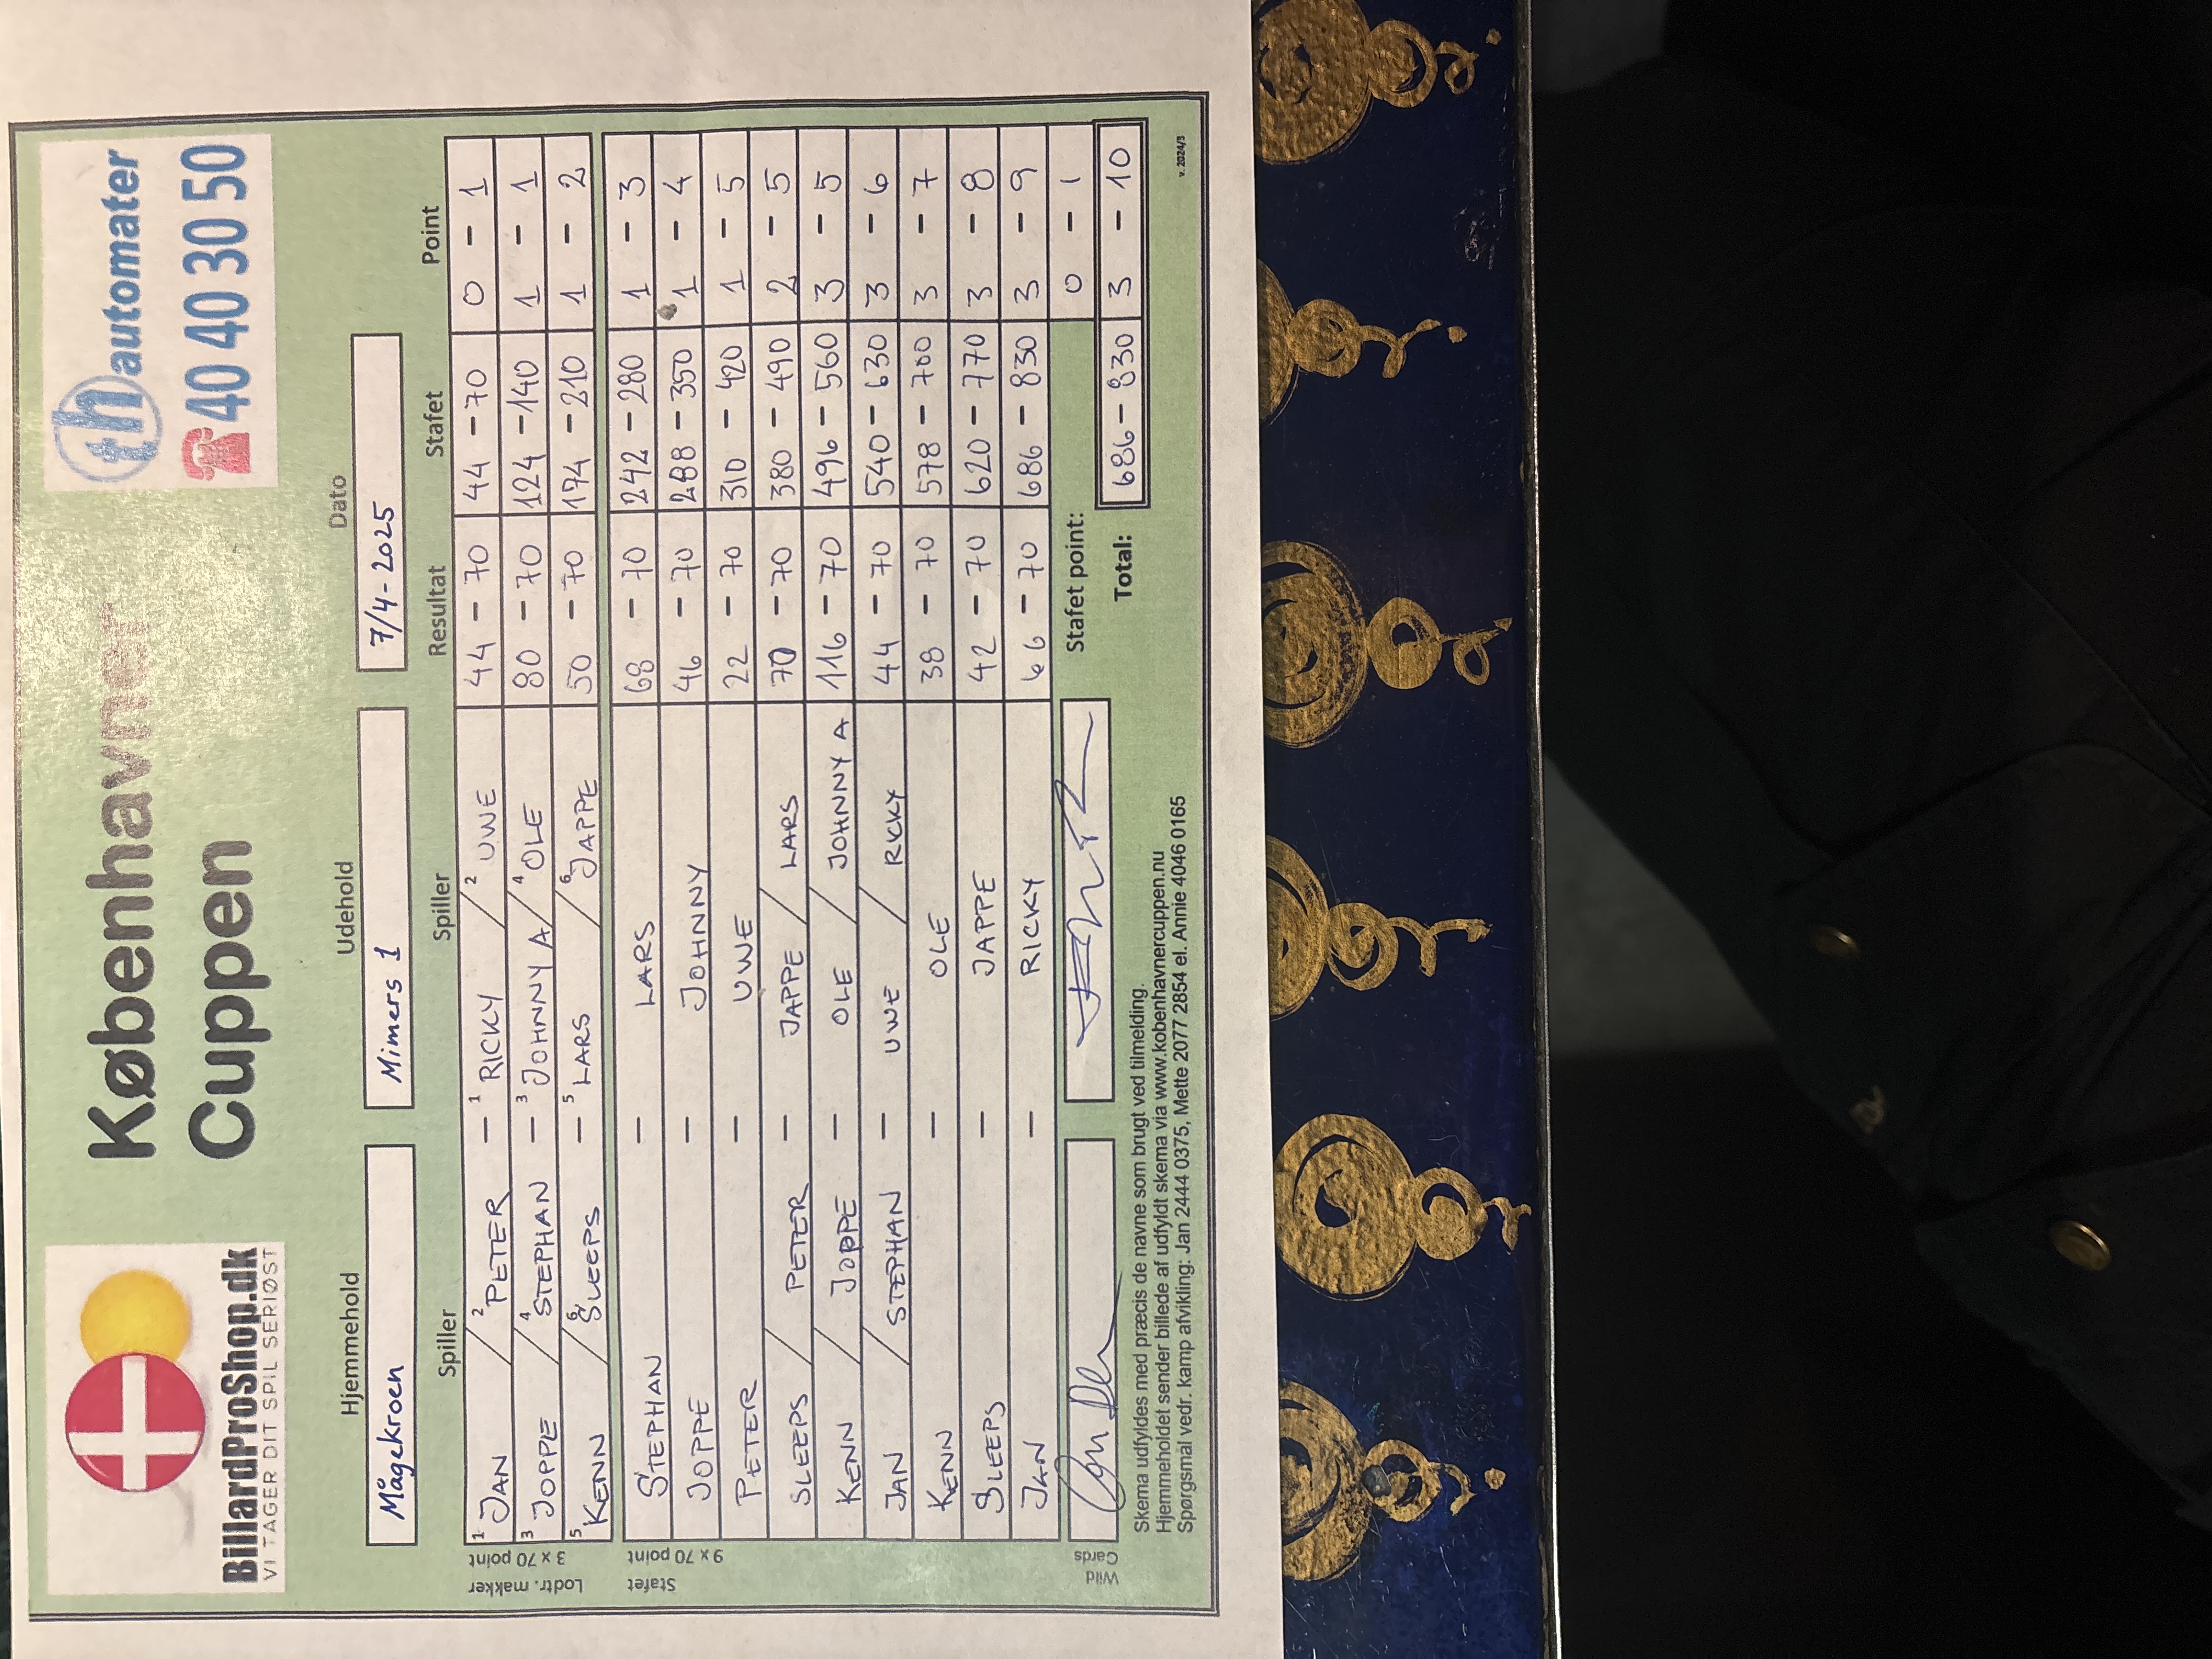 BillardProShop.dk
VI TAGER DIT SPIL SERIØST
Københavner
Cuppen
th automater
40 40 30 50
Hjemmehold Udehold Dato
Mågekroen Mimers 1 7/4-2025
Spiller Spiller Resultat Stafet Point
Lodtr. makker 3 x 70 point
1 JAN / 2 PETER – 1 RICKY / 2 UWE 44 – 70 44 – 70 0 – 1
3 JOPPE / 4 STEPHAN – 3 JOHNNY A / 4 OLE 80 – 70 124 – 140 1 – 1
5 KENN / 6 SLEEPS – 5 LARS / 6 JAPPE 50 – 70 174 – 210 1 – 2
Stafet 9 x 70 point
STEPHAN – LARS 68 – 70 242 – 280 1 – 3
JOPPE – JOHNNY 46 – 70 288 – 350 1 – 4
PETER – UWE 22 – 70 310 – 420 1 – 5
SLEEPS / PETER – JAPPE / LARS 70 – 70 380 – 490 2 – 5
KENN / JOPPE – OLE / JOHNNY A 116 – 70 496 – 560 3 – 5
JAN / STEPHAN – UWE / RICKY 44 – 70 540 – 630 3 – 6
KENN – OLE 38 – 70 578 – 700 3 – 7
SLEEPS – JAPPE 42 – 70 620 – 770 3 – 8
JAN – RICKY 66 – 70 686 – 830 3 – 9
Wild Cards Stafet point: 0 – 1
Total: 686 – 830 3 – 10
Skema udfyldes med præcis de navne som brugt ved tilmelding.
Hjemmeholdet sender billede af udfyldt skema via www.kobenhavnercuppen.nu
Spørgsmål vedr. kamp afvikling: Jan 2444 0375, Mette 2077 2854 el. Annie 4046 0165
v. 2024/3